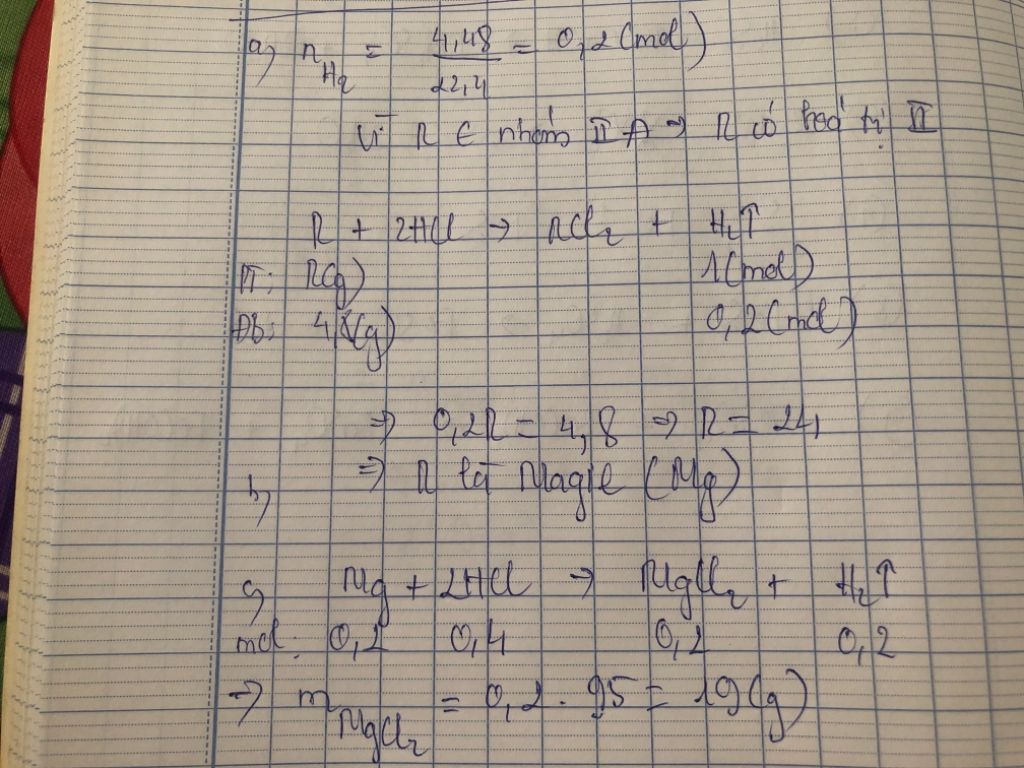 a, n H2 = 4,48 / 22,4 = 0,2 (mol)
Vì R ∈ nhóm II A → R có hoá trị II
R + 2HCl → RCl2 + H2↑
PT: R(g) 1 (mol)
ĐB: 4,8(g) 0,2 (mol)
⇒ 0,2R = 4,8 ⇒ R = 24,
⇒ R là Magie (Mg)
b,
c, Mg + 2HCl → MgCl2 + H2↑
mol: 0,2 0,4 0,2 0,2
→ m MgCl2 = 0,2 . 95 = 19 (g)